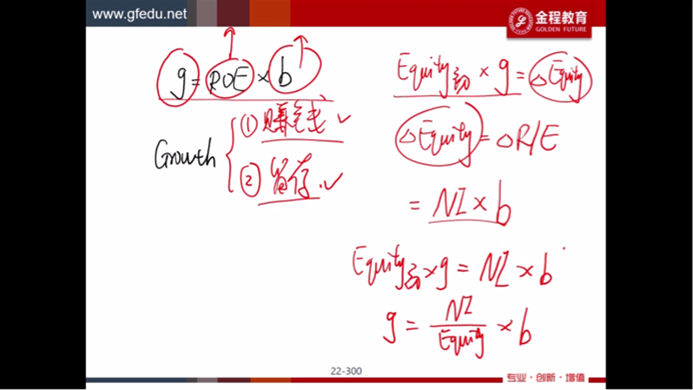 www.gfedu.net
金程教育
GOLDEN FUTURE
g = ROE × b
Growth
① 赚钱 ✓
② 留存 ✓
Equity初 × g = △Equity
△Equity = △R/E
= NI × b
Equity初 × g = NI × b
g = NI / Equity × b
22-300
专业·创新·增值